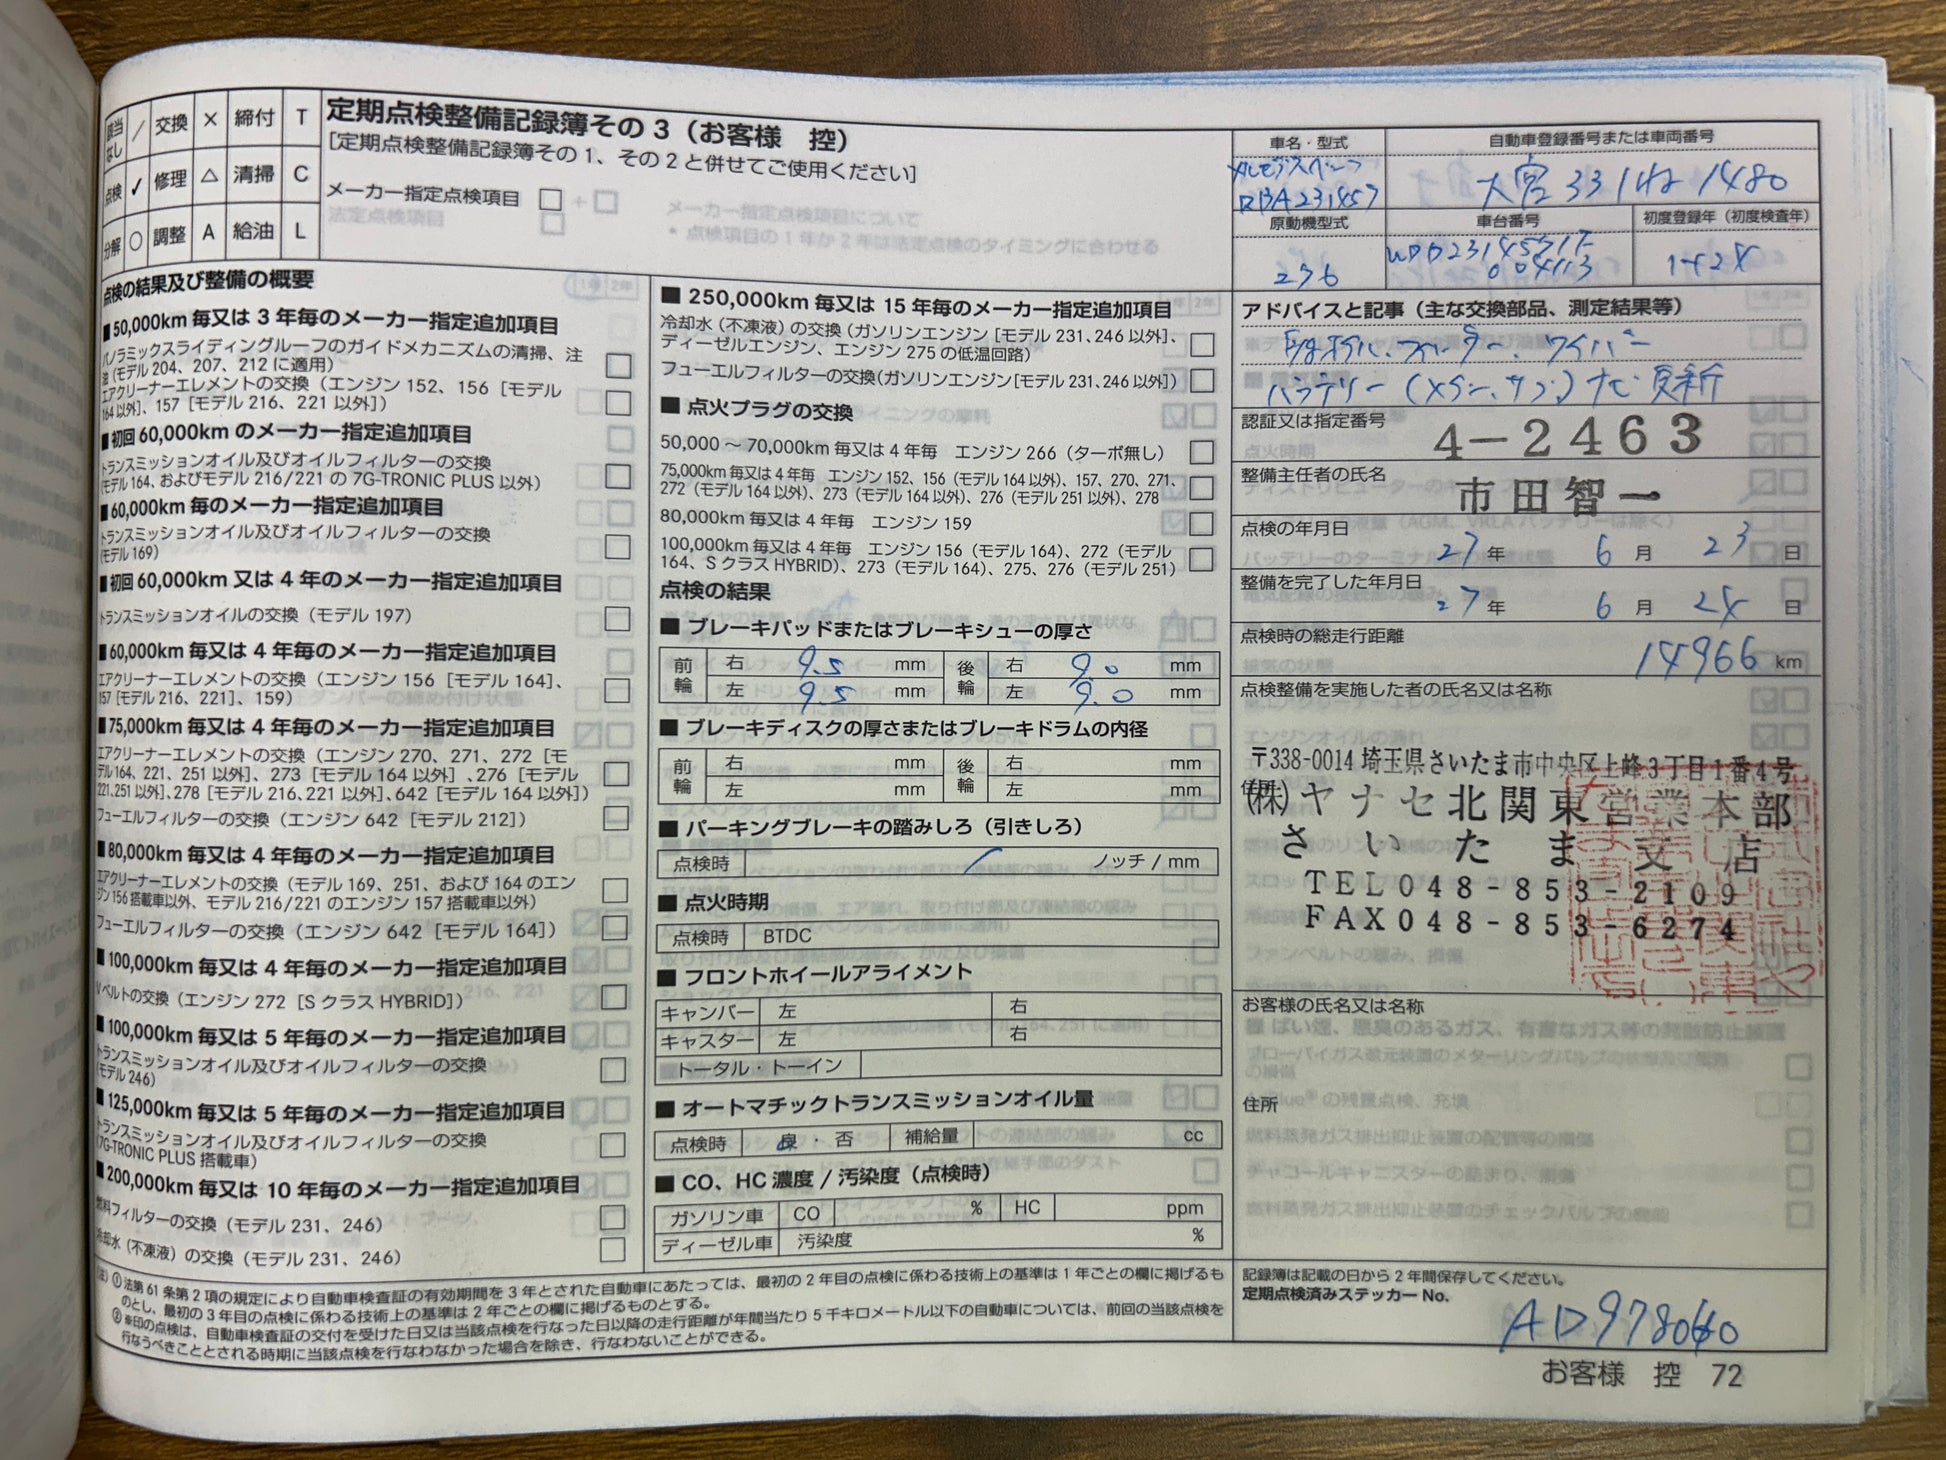 該当なし ／ 交換 × 締付 T
点検 ✓ 修理 △ 清掃 C
分解 ○ 調整 A 給油 L
定期点検整備記録簿その3（お客様　控）
［定期点検整備記録簿その1、その2と併せてご使用ください］
メーカー指定点検項目 □
点検の結果及び整備の概要
■50,000km毎又は3年毎のメーカー指定追加項目
パノラミックスライディングルーフのガイドメカニズムの清掃、注
油（モデル204、207、212に適用）
エアクリーナーエレメントの交換（エンジン152、156［モデル
164以外］、157［モデル216、221以外］）
■初回60,000kmのメーカー指定追加項目
トランスミッションオイル及びオイルフィルターの交換
（モデル164、およびモデル216/221の7G-TRONIC PLUS以外）
■60,000km毎のメーカー指定追加項目
トランスミッションオイル及びオイルフィルターの交換
（モデル169）
■初回60,000km又は4年のメーカー指定追加項目
トランスミッションオイルの交換（モデル197）
■60,000km毎又は4年毎のメーカー指定追加項目
エアクリーナーエレメントの交換（エンジン156［モデル164］、
157［モデル216、221］、159）
■75,000km毎又は4年毎のメーカー指定追加項目
エアクリーナーエレメントの交換（エンジン270、271、272［モ
デル164、221、251以外］、273［モデル164以外］、276［モデル
221,251以外］、278［モデル216、221以外］、642［モデル164以外］）
フューエルフィルターの交換（エンジン642［モデル212］）
■80,000km毎又は4年毎のメーカー指定追加項目
エアクリーナーエレメントの交換（モデル169、251、および164のエン
ジン156搭載車以外、モデル216/221のエンジン157搭載車以外）
フューエルフィルターの交換（エンジン642［モデル164］）
■100,000km毎又は4年毎のメーカー指定追加項目
Vベルトの交換（エンジン272［SクラスHYBRID］）
■100,000km毎又は5年毎のメーカー指定追加項目
トランスミッションオイル及びオイルフィルターの交換
（モデル246）
■125,000km毎又は5年毎のメーカー指定追加項目
トランスミッションオイル及びオイルフィルターの交換
（7G-TRONIC PLUS搭載車）
■200,000km毎又は10年毎のメーカー指定追加項目
燃料フィルターの交換（モデル231、246）
冷却水（不凍液）の交換（モデル231、246）
■250,000km毎又は15年毎のメーカー指定追加項目
冷却水（不凍液）の交換（ガソリンエンジン［モデル231、246以外］、
ディーゼルエンジン、エンジン275の低温回路）
フューエルフィルターの交換（ガソリンエンジン［モデル231、246以外］）
■点火プラグの交換
50,000～70,000km毎又は4年毎　エンジン266（ターボ無し）
75,000km毎又は4年毎　エンジン152、156（モデル164以外）、157、270、271、
272（モデル164以外）、273（モデル164以外）、276（モデル251以外）、278
80,000km毎又は4年毎　エンジン159
100,000km毎又は4年毎　エンジン156（モデル164）、272（モデル
164、SクラスHYBRID）、273（モデル164）、275、276（モデル251）
点検の結果
■ブレーキパッドまたはブレーキシューの厚さ
前輪 右 9.5 mm 後輪 右 9.0 mm
左 9.5 mm 左 9.0 mm
■ブレーキディスクの厚さまたはブレーキドラムの内径
前輪 右 mm 後輪 右 mm
左 mm 左 mm
■パーキングブレーキの踏みしろ（引きしろ）
点検時 ／ ノッチ / mm
■点火時期
点検時 BTDC
■フロントホイールアライメント
キャンバー 左 右
キャスター 左 右
トータル・トーイン
■オートマチックトランスミッションオイル量
点検時 良・否 補給量 cc
■CO、HC濃度 / 汚染度（点検時）
ガソリン車 CO % HC ppm
ディーゼル車 汚染度 %
（注）①法第61条第2項の規定により自動車検査証の有効期間を3年とされた自動車にあたっては、最初の2年目の点検に係わる技術上の基準は1年ごとの欄に掲げるも
のとし、最初の3年目の点検に係わる技術上の基準は2年ごとの欄に掲げるものとする。
②※印の点検は、自動車検査証の交付を受けた日又は当該点検を行なった日以降の走行距離が年間当たり5千キロメートル以下の自動車については、前回の当該点検を
行なうべきこととされる時期に当該点検を行なわなかった場合を除き、行なわないことができる。
車名・型式 自動車登録番号または車両番号
メルセデスベンツ
RBA231457 大宮 331 ね 1480
原動機型式 車台番号 初度登録年（初度検査年）
276 WDD2314571F
004113 H24
アドバイスと記事（主な交換部品、測定結果等）
オイル、フィルター、ワイパー
バッテリー（メイン、サブ）ナビ更新
認証又は指定番号 4-2463
整備主任者の氏名 市田智一
点検の年月日 27年 6月 23日
整備を完了した年月日 27年 6月 24日
点検時の総走行距離 14966 km
点検整備を実施した者の氏名又は名称
〒338-0014 埼玉県さいたま市中央区上峰3丁目1番4号
(株)ヤナセ北関東営業本部
さいたま支店
TEL048-853-2109
FAX048-853-6274
お客様の氏名又は名称
住所
記録簿は記載の日から2年間保存してください。
定期点検済みステッカーNo.
お客様　控　72